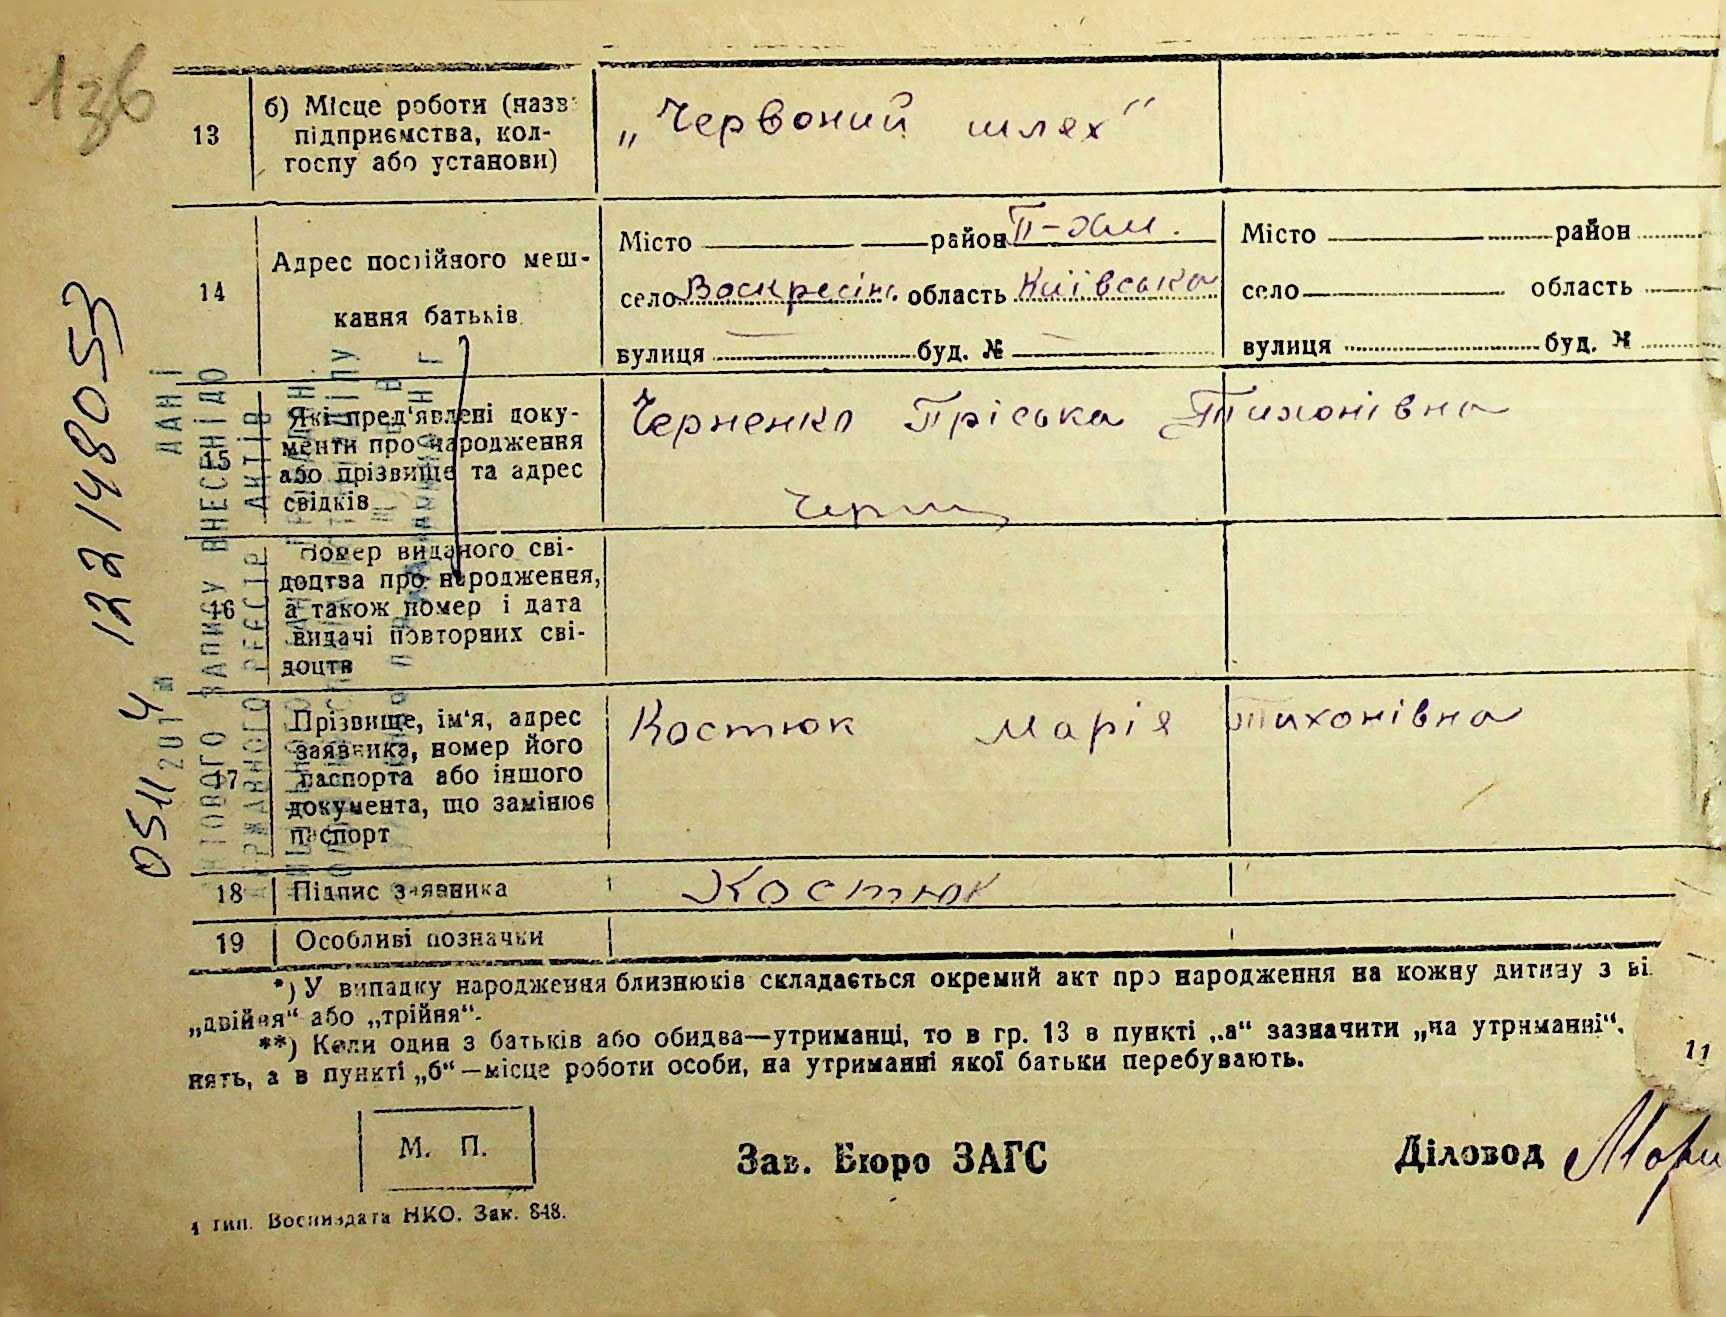 136
13
б) Місце роботи (назв
підприємства, кол-
госпу або установи)
„Червоний шлях“
14
Адрес постійного меш-
кання батьків
Місто район П-Хм.
село Воскресінс. область Київська
вулиця буд. №
Місто район
село область
вулиця буд. №
15
Які пред'явлені доку-
менти про народження
або прізвище та адрес
свідків
Черненко Пріська Тихонівна
16
Номер виданого сві-
доцтва про народження,
а також номер і дата
видачі повторних сві-
доцтв
17
Прізвище, ім'я, адрес
заявника, номер його
паспорта або іншого
документа, що замінює
паспорт
Костюк Марія Тихонівна
18
Підпис заявника
Костюк
19
Особливі позначки
*) У випадку народження близнюків складається окремий акт про народження на кожну дитину з ві
„двійня“ або „трійня“.
**) Коли один з батьків або обидва—утриманці, то в гр. 13 в пункті „а“ зазначити „на утриманні“,
нять, а в пункті „б“—місце роботи особи, на утриманні якої батьки перебувають.
11
М. П.
Зав. Бюро ЗАГС
Діловод
Тип. Воениздата НКО. Зак. 848.
0511 2014 122148053
ДАНІ
ВОГО ЗАПИСУ ВНЕСЕНІ ДО
РЖАВНОГО РЕЄСТР АКТІВ